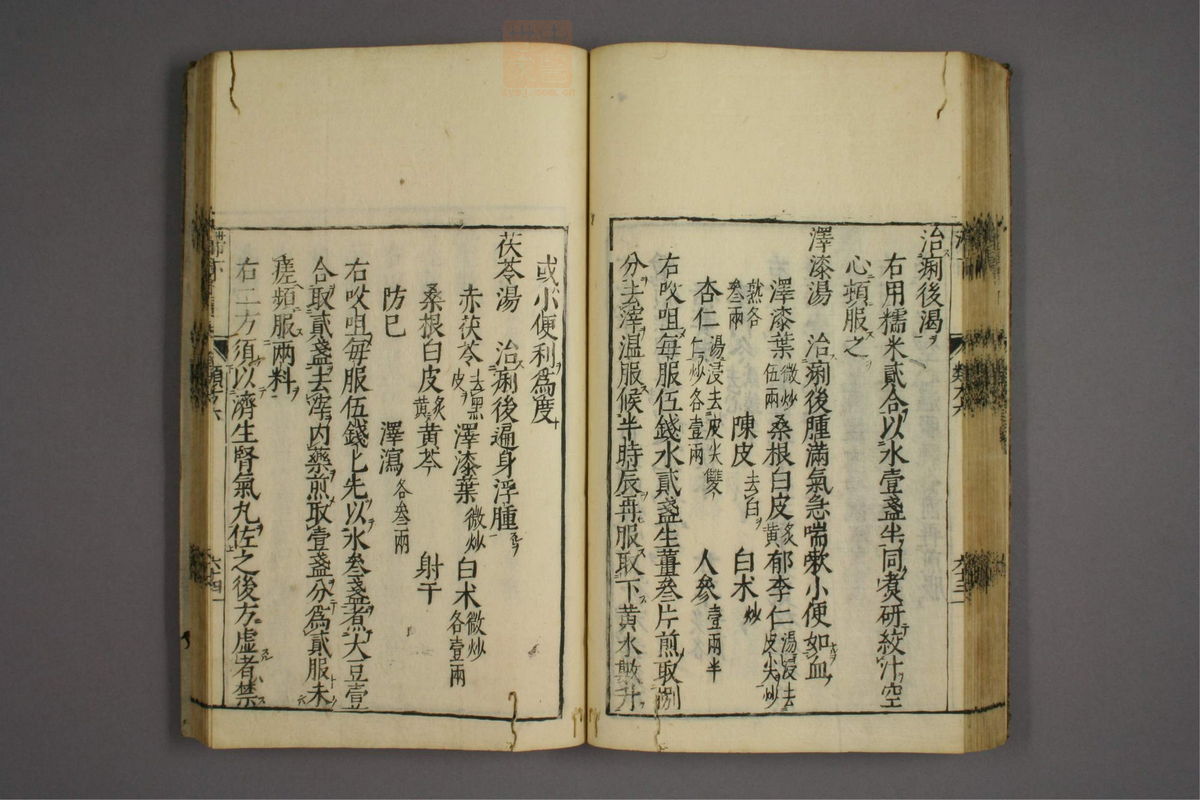 治痢後渴
右用糯米貳合以水壹盞半同煑研絞汁空
心頓服之
澤漆湯　治痢後腫滿氣急喘嗽小便如血
澤漆葉微炒伍兩桑根白皮炙黃郁李仁湯浸去皮尖炒
熟各叄兩　陳皮去白　白朮炒
杏仁湯浸去皮尖雙仁炒各壹兩　人參壹兩半
右㕮咀每服伍錢水貳盞生薑叄片煎取捌
分去滓温服候半時辰再服取下黄水數升
或小便利為度
茯苓湯　治痢後遍身浮腫
赤茯苓去黑皮澤漆葉微炒白朮微炒各壹兩
桑根白皮炙黃黄芩　射干
防已　澤瀉各叄兩
右㕮咀每服伍錢匕先以水叄盞煮大豆壹
合取貳盞去滓内藥煎取壹盞分為貳服未
瘥頻服兩料
右二方須以濟生腎氣丸佐之後方虛者禁